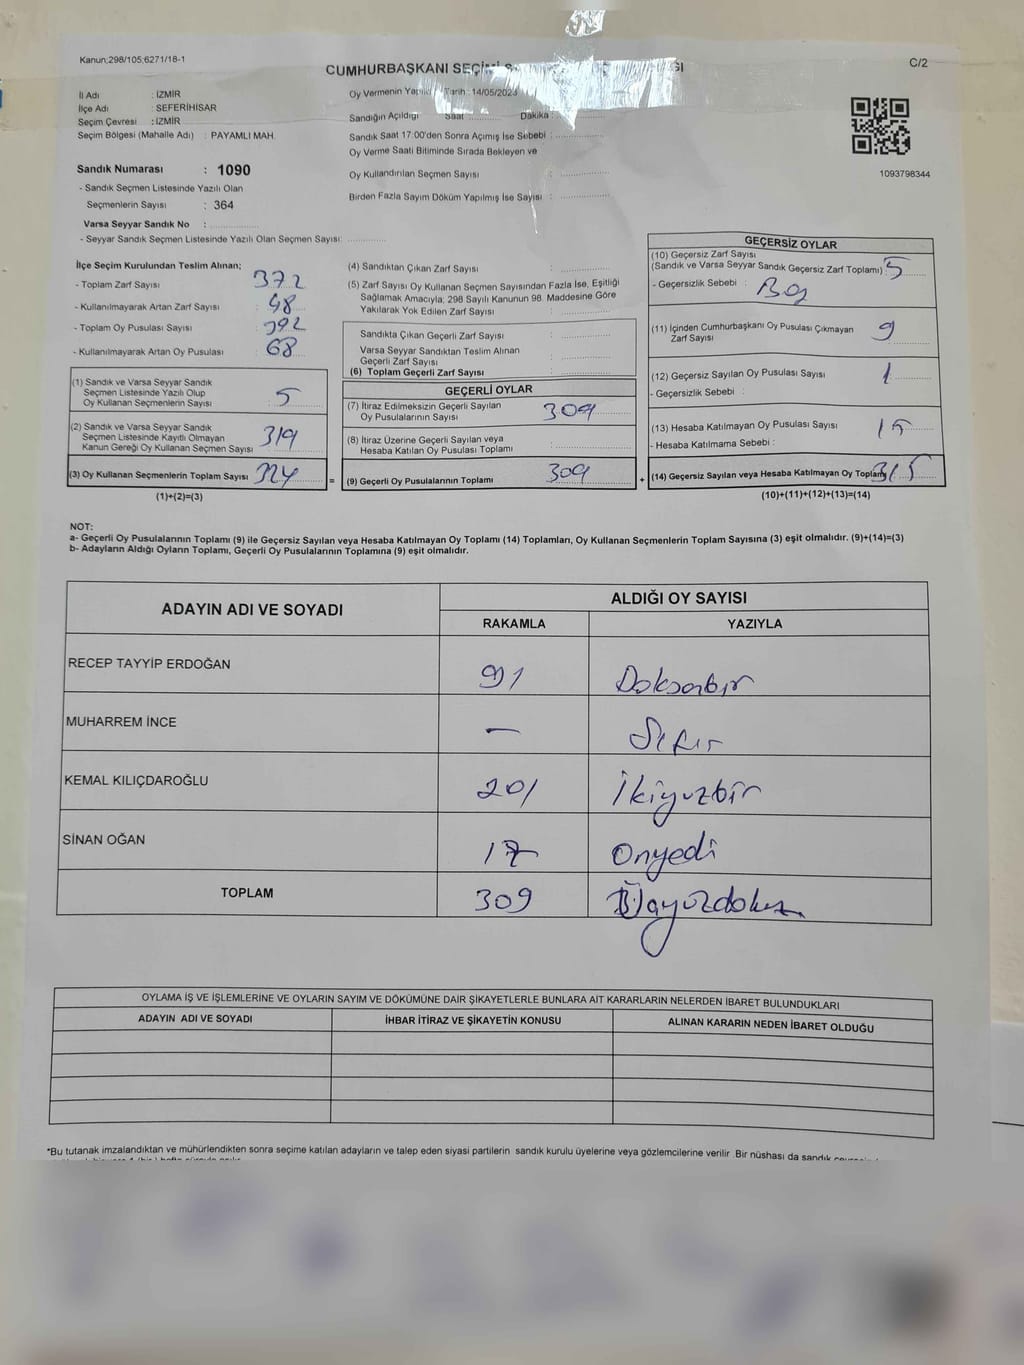 Kanun;298/105;6271/18-1
C/2
CUMHURBAŞKANI SEÇİMİ
İl Adı : İZMİR
İlçe Adı : SEFERİHİSAR
Seçim Çevresi : İZMİR
Seçim Bölgesi (Mahalle Adı) : PAYAMLI MAH.
Sandık Numarası : 1090
- Sandık Seçmen Listesinde Yazılı Olan
Seçmenlerin Sayısı : 364
Varsa Seyyar Sandık No :
- Seyyar Sandık Seçmen Listesinde Yazılı Olan Seçmen Sayısı:
Oy Vermenin Tarih : 14/05/2023
Sandığın Açıldığı Saat Dakika :
Sandık Saat 17:00'den Sonra Açımış İse Sebebi :
Oy Verme Saati Bitiminde Sırada Bekleyen ve
Oy Kullandırılan Seçmen Sayısı :
Birden Fazla Sayım Döküm Yapılmış İse Sayısı :
1093798344
İlçe Seçim Kurulundan Teslim Alınan;
- Toplam Zarf Sayısı : 372
- Kullanılmayarak Artan Zarf Sayısı : 48
- Toplam Oy Pusulası Sayısı : 392
- Kullanılmayarak Artan Oy Pusulası : 68
(1) Sandık ve Varsa Seyyar Sandık
Seçmen Listesinde Yazılı Olup
Oy Kullanan Seçmenlerin Sayısı : 5
(2) Sandık ve Varsa Seyyar Sandık
Seçmen Listesinde Kayıtlı Olmayan
Kanun Gereği Oy Kullanan Seçmen Sayısı : 319
(3) Oy Kullanan Seçmenlerin Toplam Sayısı : 324 =
(1)+(2)=(3)
(4) Sandıktan Çıkan Zarf Sayısı :
(5) Zarf Sayısı Oy Kullanan Seçmen Sayısından Fazla İse, Eşitliği
Sağlamak Amacıyla; 298 Sayılı Kanunun 98. Maddesine Göre
Yakılarak Yok Edilen Zarf Sayısı :
Sandıkta Çıkan Geçerli Zarf Sayısı :
Varsa Seyyar Sandıktan Teslim Alınan
Geçerli Zarf Sayısı :
(6) Toplam Geçerli Zarf Sayısı :
GEÇERLİ OYLAR
(7) İtiraz Edilmeksizin Geçerli Sayılan
Oy Pusulalarının Sayısı : 309
(8) İtiraz Üzerine Geçerli Sayılan veya
Hesaba Katılan Oy Pusulası Toplamı :
(9) Geçerli Oy Pusulalarının Toplamı : 309 +
GEÇERSİZ OYLAR
(10) Geçersiz Zarf Sayısı
(Sandık ve Varsa Seyyar Sandık Geçersiz Zarf Toplamı) : 5
- Geçersizlik Sebebi : Boş
(11) İçinden Cumhurbaşkanı Oy Pusulası Çıkmayan
Zarf Sayısı : 9
(12) Geçersiz Sayılan Oy Pusulası Sayısı : 1
- Geçersizlik Sebebi :
(13) Hesaba Katılmayan Oy Pusulası Sayısı : 15
- Hesaba Katılmama Sebebi :
(14) Geçersiz Sayılan veya Hesaba Katılmayan Oy Toplamı 315
(10)+(11)+(12)+(13)=(14)
NOT:
a- Geçerli Oy Pusulalarının Toplamı (9) ile Geçersiz Sayılan veya Hesaba Katılmayan Oy Toplamı (14) Toplamları, Oy Kullanan Seçmenlerin Toplam Sayısına (3) eşit olmalıdır. (9)+(14)=(3)
b- Adayların Aldığı Oyların Toplamı, Geçerli Oy Pusulalarının Toplamına (9) eşit olmalıdır.
ADAYIN ADI VE SOYADI
ALDIĞI OY SAYISI
RAKAMLA YAZIYLA
RECEP TAYYİP ERDOĞAN 91 Doksanbir
MUHARREM İNCE — Sıfır
KEMAL KILIÇDAROĞLU 201 İkiyuzbir
SİNAN OĞAN 17 Onyedi
TOPLAM 309
OYLAMA İŞ VE İŞLEMLERİNE VE OYLARIN SAYIM VE DÖKÜMÜNE DAİR ŞİKAYETLERLE BUNLARA AİT KARARLARIN NELERDEN İBARET BULUNDUKLARI
ADAYIN ADI VE SOYADI İHBAR İTİRAZ VE ŞİKAYETİN KONUSU ALINAN KARARIN NEDEN İBARET OLDUĞU
*Bu tutanak imzalandıktan ve mühürlendikten sonra seçime katılan adayların ve talep eden siyasi partilerin sandık kurulu üyelerine veya gözlemcilerine verilir. Bir nüshası da sandık